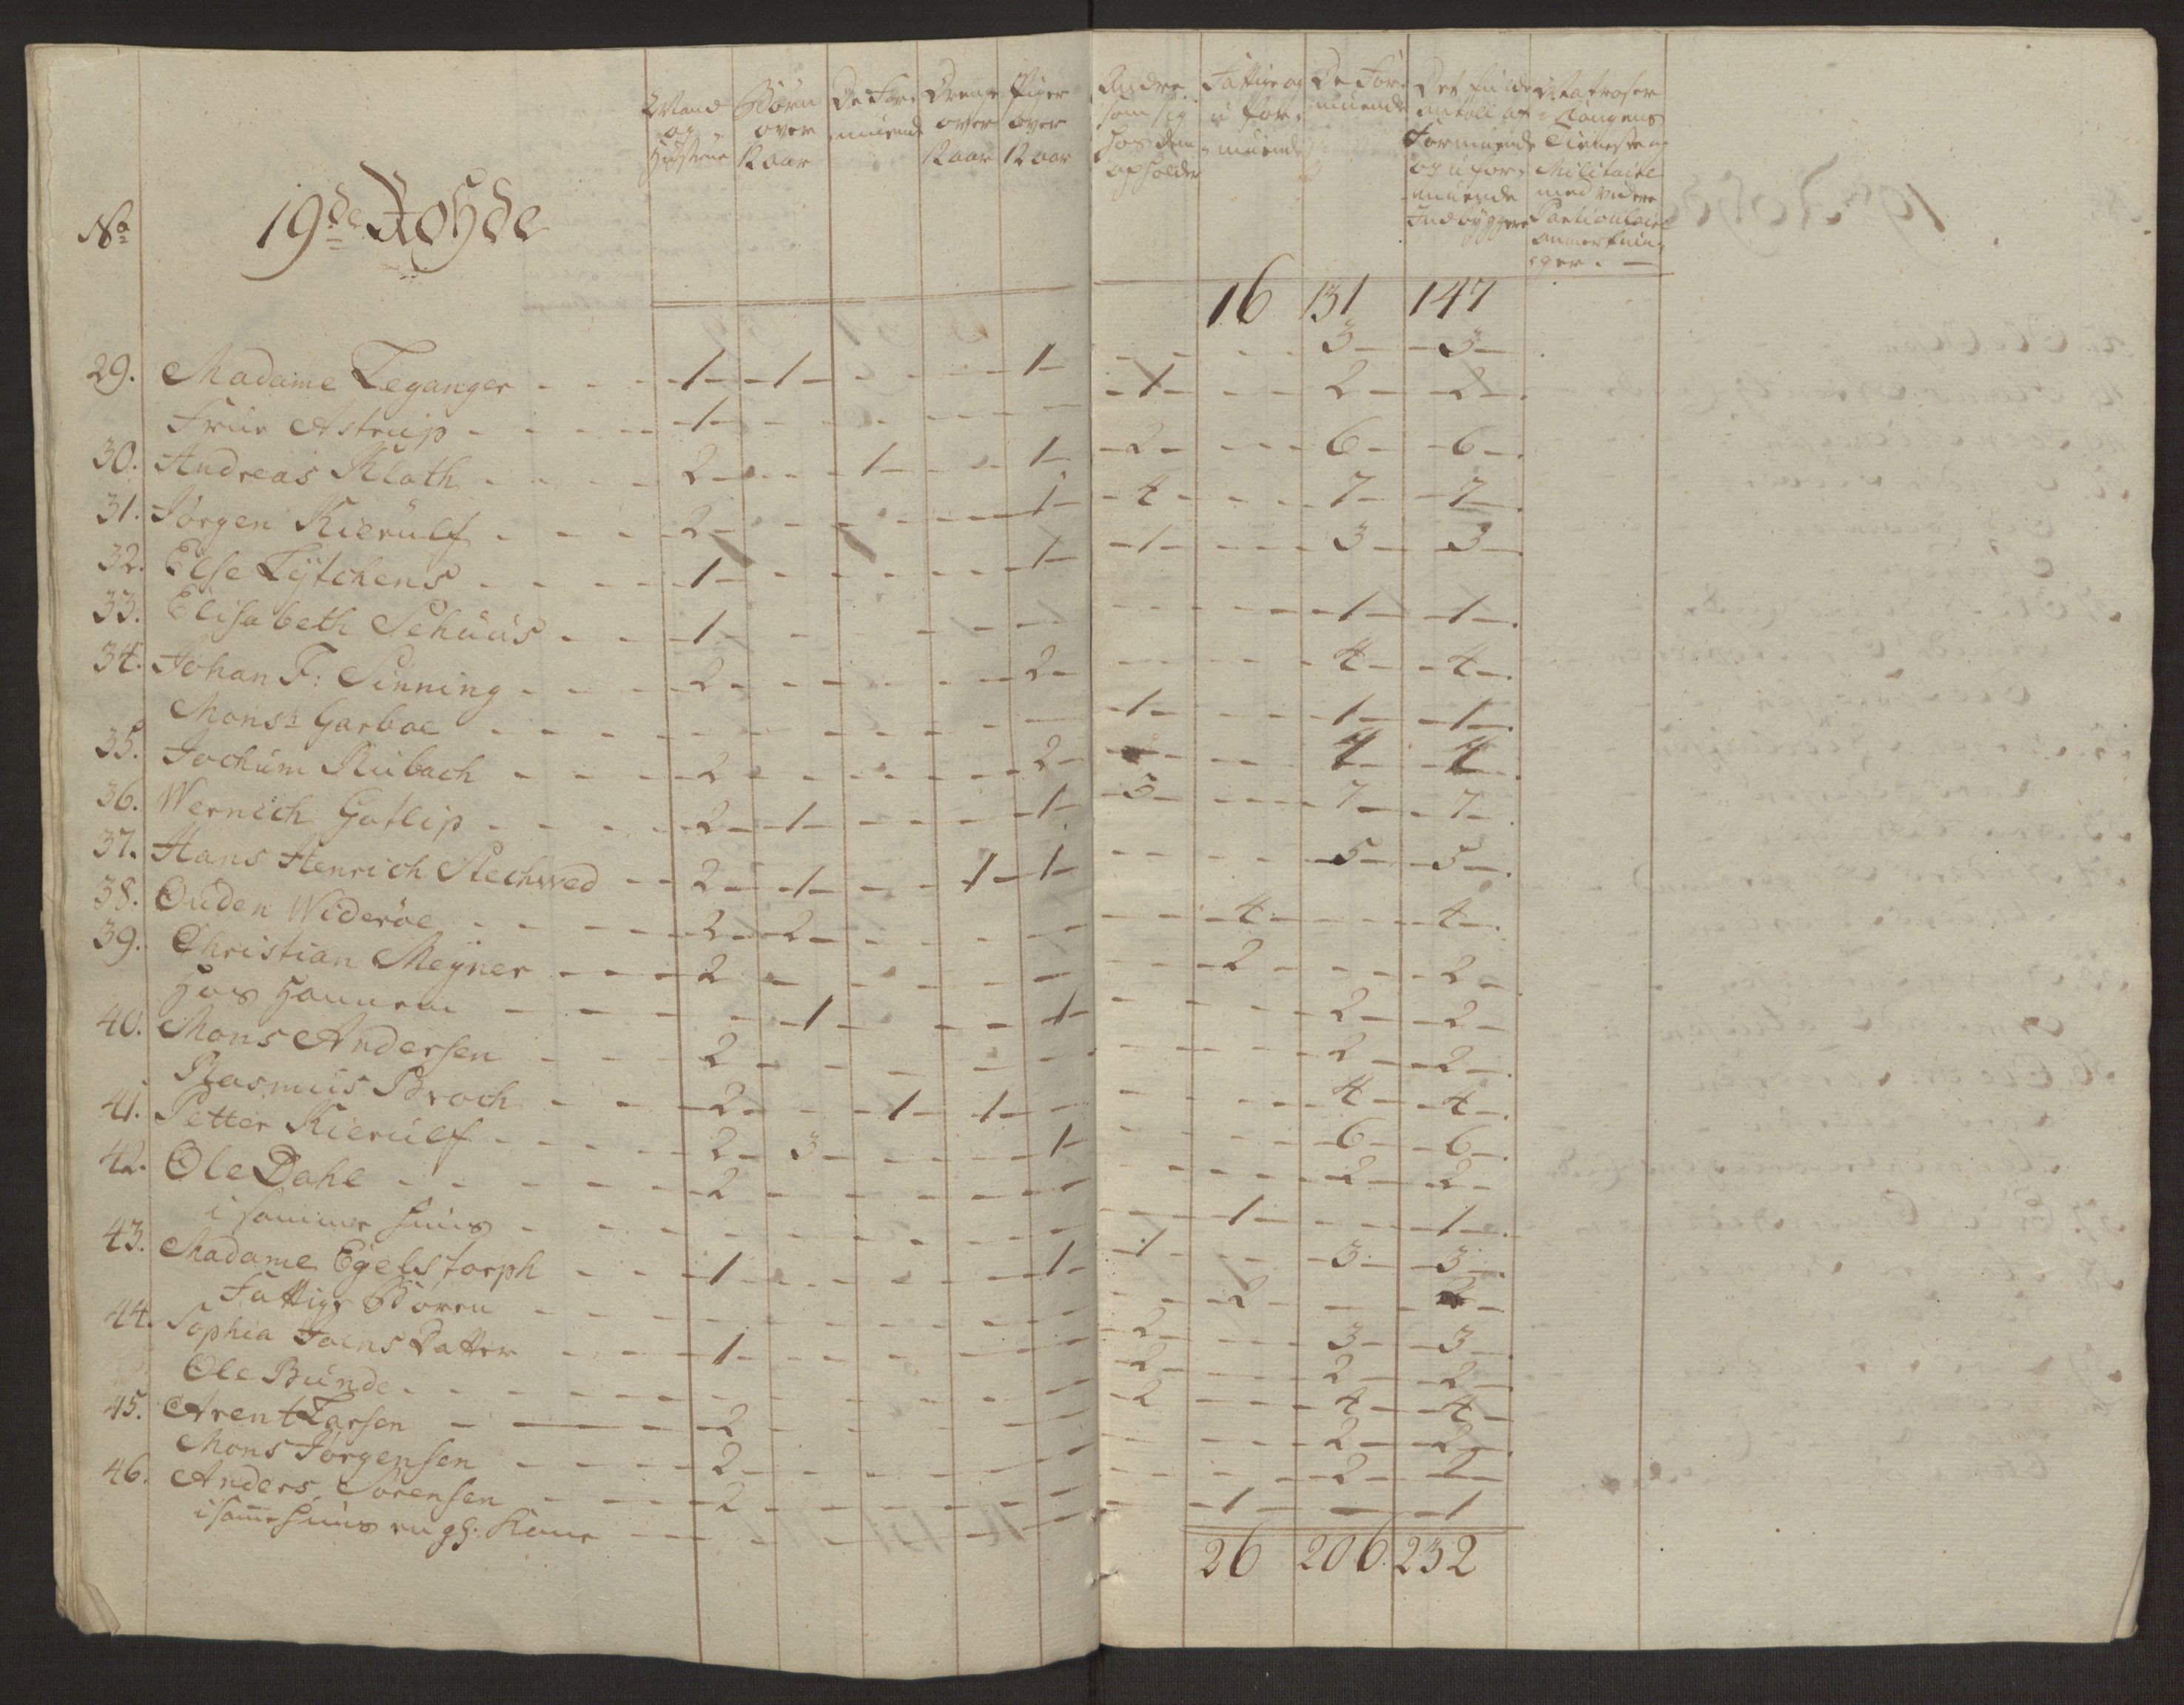 No 19de Rohde
Mand og Hustrue | Børn over 12 aar | De For-muende | Drenge over 12 aar | Piger over 12 aar | Andre som sig hos dem opholder | Fattige og u for-muende | De For-muende | Det fulde antall af Formuende og u for-muende Indbyggere | Matroser i Kongens Tieneste og Militaire med videre Particulaire anmerkninger. —
16 131 147
29. Madame Leganger - - - 1 - 1 - - - - 1 - - - 3 - 3
Frue Astrup - - - - 1 - - - - - 1 - - 2 - 2
30. Andreas Kloth - - - - 2 - - 1 - - 1 - 2 - - 6 - 6
31. Jørgen Kierulf - - - 2 - - - - 1 - 4 - - 7 - 7
32. Else Lÿtchens - - - - 1 - - - - 1 - 1 - - 3 - 3
33. Elisabeth Schuus - - 1 - - - - - - - - 1 - 1
34. Johan F: Sinning - - - 2 - - - - 2 - - - 4 - 4
Monsr Garboe - - - - - - - - - 1 - - 1 - 1
35. Jochum Rubach - - - 2 - - - - 2 - - - 4 - 4
36. Wernich Gotlip - - - - 2 - 1 - - - 1 - 3 - - 7 - 7
37. Hans Henrich Stechwed - - 2 - 1 - - 1 - 1 - - - 5 - 5
38. Ouden Widerøe - - - - 2 - 2 - - - - - - 4 - - 4
39. Christian Meÿner - - - 2 - - - - - - - 2 - - 2
Hos Hannem - - - - 1 - - - 1 - - - 2 - 2
40. Mons Andersen - - - 2 - - - - - - - 2 - 2
Rasmus Broch - - - 2 - - 1 - 1 - - - - 4 - 4
41. Petter Kierulf - - - - 2 - 3 - - - 1 - - - 6 - 6
42. Ole Dahl - - - - 2 - - - - - - - 2 - 2
i samme Huus - - - - - - - - - - 1 - - 1
43. Madame Egelstorph - - 1 - - - - 1 - 1 - - 3 - 3
Fattige Børen - - - - - - - - - 2 - - 2
44. Sophia Joens Datter - - - 1 - - - - - 2 - - 3 - 3
Ole Bunde - - - - - - - - - 2 - - 2 - 2
45. Arent Larsen - - - 2 - - - - - 2 - - 4 - 4
Mons Jørgensen - - - - 2 - - - - - - - 2 - 2
46. Anders Sørensen - - - 2 - - - - - - - 2 - 2
i samme Huus en gl. Kone - - - - - - - 1 - - 1
26 206. 232